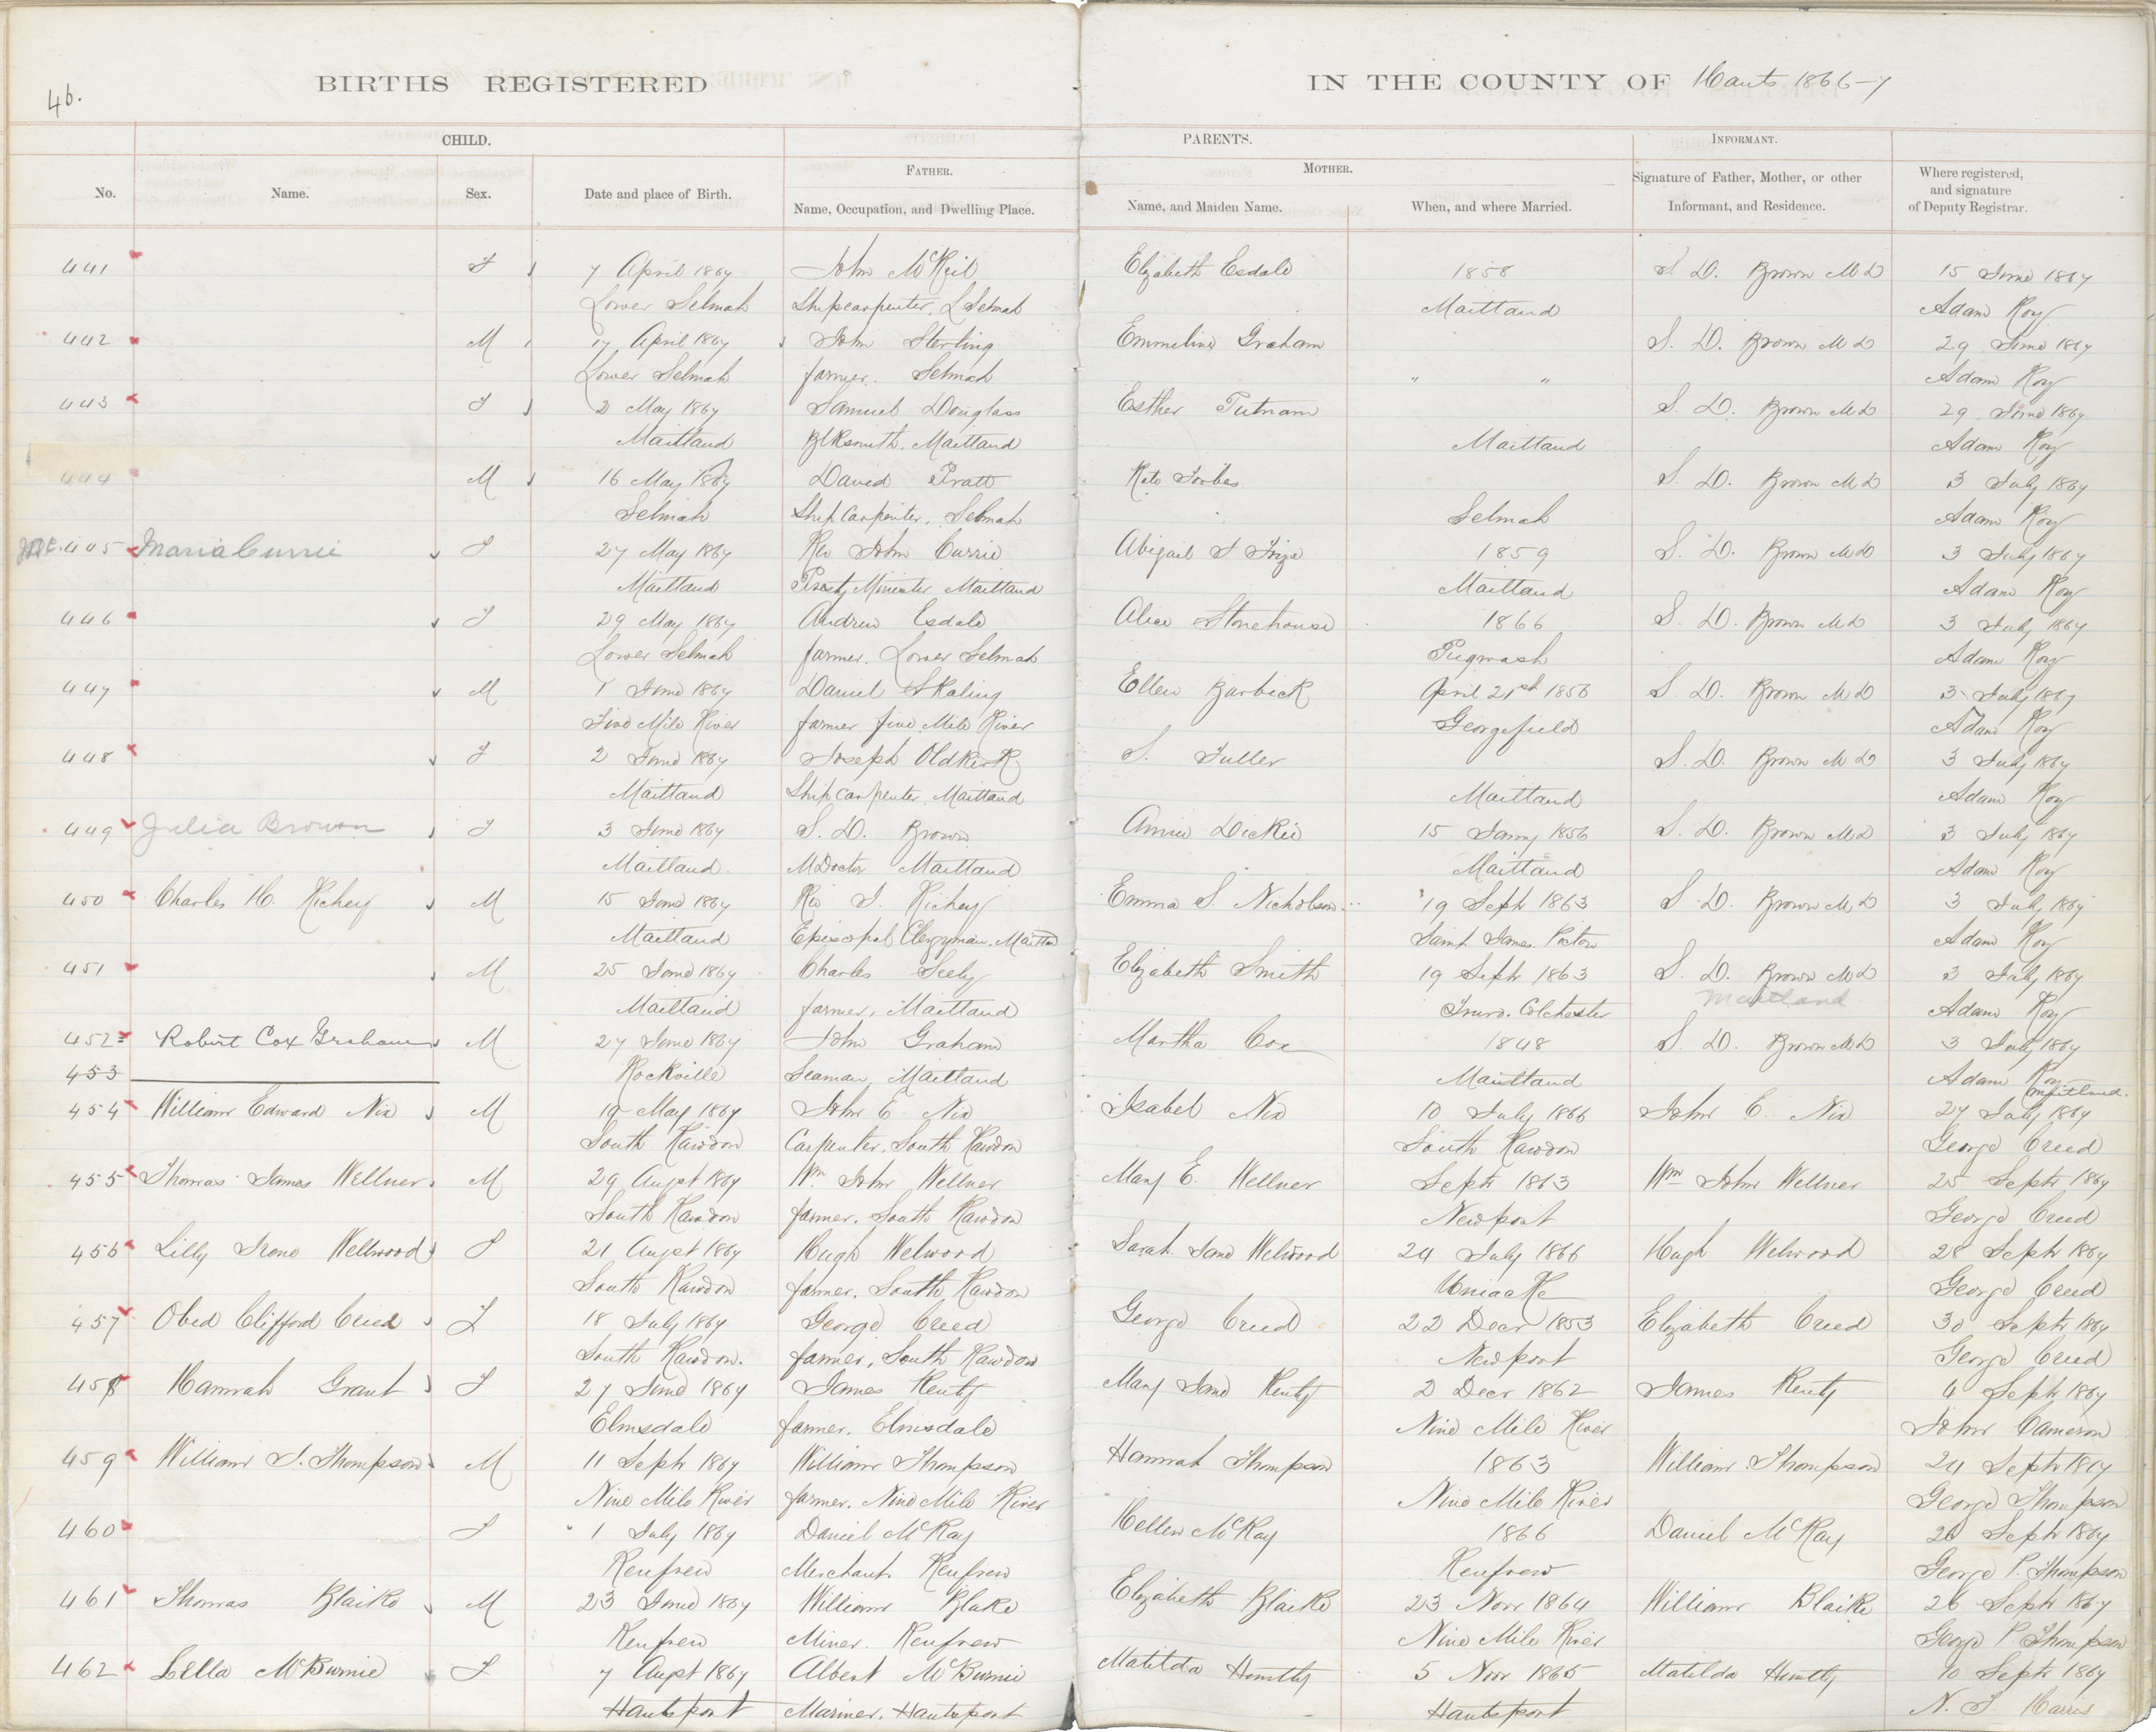 46.
BIRTHS REGISTERED IN THE COUNTY OF Hants 1866-7
CHILD. PARENTS. INFORMANT.
FATHER. MOTHER.
No. Name. Sex. Date and place of Birth. Name, Occupation, and Dwelling Place. Name, and Maiden Name. When, and where Married. Signature of Father, Mother, or other Informant, and Residence. Where registered, and signature of Deputy Registrar.
441 F 7 April 1867 John McNeil Elizabeth Esdale 1858 S. D. Brown MD 15 June 1867
Lower Selmah Shipcarpenter. L Selmah Maitland Adam Roy
442 M 17 April 1867 John Sterling Emmeline Graham S. D. Brown MD 29 June 1867
Lower Selmah farmer. Selmah " " Adam Roy
443 F 2 May 1867 Samuel Douglass Esther Putnam S. D. Brown MD 29 June 1867
Maitland Blksmith. Maitland Maitland Adam Roy
444 M 16 May 1867 David Pratt Kate Forbes S. D. Brown MD 3 July 1867
Selmah Ship Carpenter. Selmah Selmah Adam Roy
445 Maria Currie F 27 May 1867 Rev John Currie Abigail F 1859 S. D. Brown MD 3 July 1867
Maitland Presty Minister Maitland Maitland Adam Roy
446 F 29 May 1867 Andrew Esdale Alice Stonehouse 1866 S. D. Brown MD 3 July 1867
Lower Selmah farmer. Lower Selmah Pugwash Adam Roy
447 M 1 June 1867 Daniel Skaling Ellen Barbick April 21st 1856 S. D. Brown MD 3 July 1867
Five Mile River farmer five Mile River Georgefield Adam Roy
448 F 2 June 1867 Joseph Oldkirk S. Fuller S. D. Brown MD 3 July 1867
Maitland Ship Carpenter. Maitland Maitland Adam Roy
449 Julia Brown F 3 June 1867 S. D. Brown Annie Dickie 15 Jany 1856 S. D. Brown MD 3 July 1867
Maitland. MDoctor Maitland Maitland Adam Roy
450 Charles H. Richey M 15 June 1867 Rev J. Richey Emma S. Nicholson 19 Sept 1863 S. D. Brown MD 3 July 1867
Maitland Episcopal Clergyman. Maitland Saint James. Pictou Adam Roy
451 M 25 June 1867 Charles Seely Elizabeth Smith 19 Sept 1863 S. D. Brown MD 3 July 1867
Maitland farmer, Maitland Truro. Colchester Maitland Adam Roy
452 Robert Cox Graham M 27 June 1867 John Graham Martha Cox 1848 S. D. Brown MD 3 July 1867
453 Rockville Seaman, Maitland Maitland Adam Roy
Maitland.
454 William Edward Nix M 19 May 1867 John E Nix Isabel Nix 10 July 1866 John E. Nix 27 July 1867
South Rawdon Carpenter. South Rawdon South Rawdon George Creed
455 Thomas James Wellner M 29 Augst 1867 Wm John Wellner Mary E. Wellner Septr 1863 Wm John Wellner 25 Septr 1867
South Rawdon farmer. South Rawdon Newport George Creed
456 Lilly Irene Wellwood F 21 Augst 1867 Hugh Welwood Sarah Jane Welwood 24 July 1866 Hugh Welwood 28 Septr 1867
South Rawdon farmer. South Rawdon Uniacke George Creed
457 Obed Clifford Creed F 18 July 1867 George Creed George Creed 22 Decr 1853 Elizabeth Creed 30 Septr 1867
South Rawdon. farmer, South Rawdon Newport George Creed
458 Hannah Grant F 27 June 1867 James Renty Mary Jane Renty 2 Decr 1862 James Renty 4 Septr 1867
Elmsdale farmer. Elmsdale Nine Mile River John Cameron
459 William J. Thompson M 11 Septr 1867 William Thompson Hannah Thompson 1863 William Thompson 24 Septr 1867
Nine Mile River farmer. Nine Mile River Nine Mile River George Thompson
460 F 1 July 1867 Daniel McKay Hellen McKay 1866 Daniel McKay 26 Septr 1867
Renfrew Merchant. Renfrew Renfrew George P. Thompson
461 Thomas Blaike M 23 June 1867 William Blake Elizabeth Blaike 23 Novr 1864 William Blaike 26 Septr 1867
Renfrew Miner. Renfrew Nine Mile River George P. Thompson
462 Lella McBurnie F 7 Augst 1867 Albert McBurnie Matilda 5 Novr 1865 Matilda 10 Septr 1867
Hantsport Mariner. Hantsport Hantsport N. T. Harris